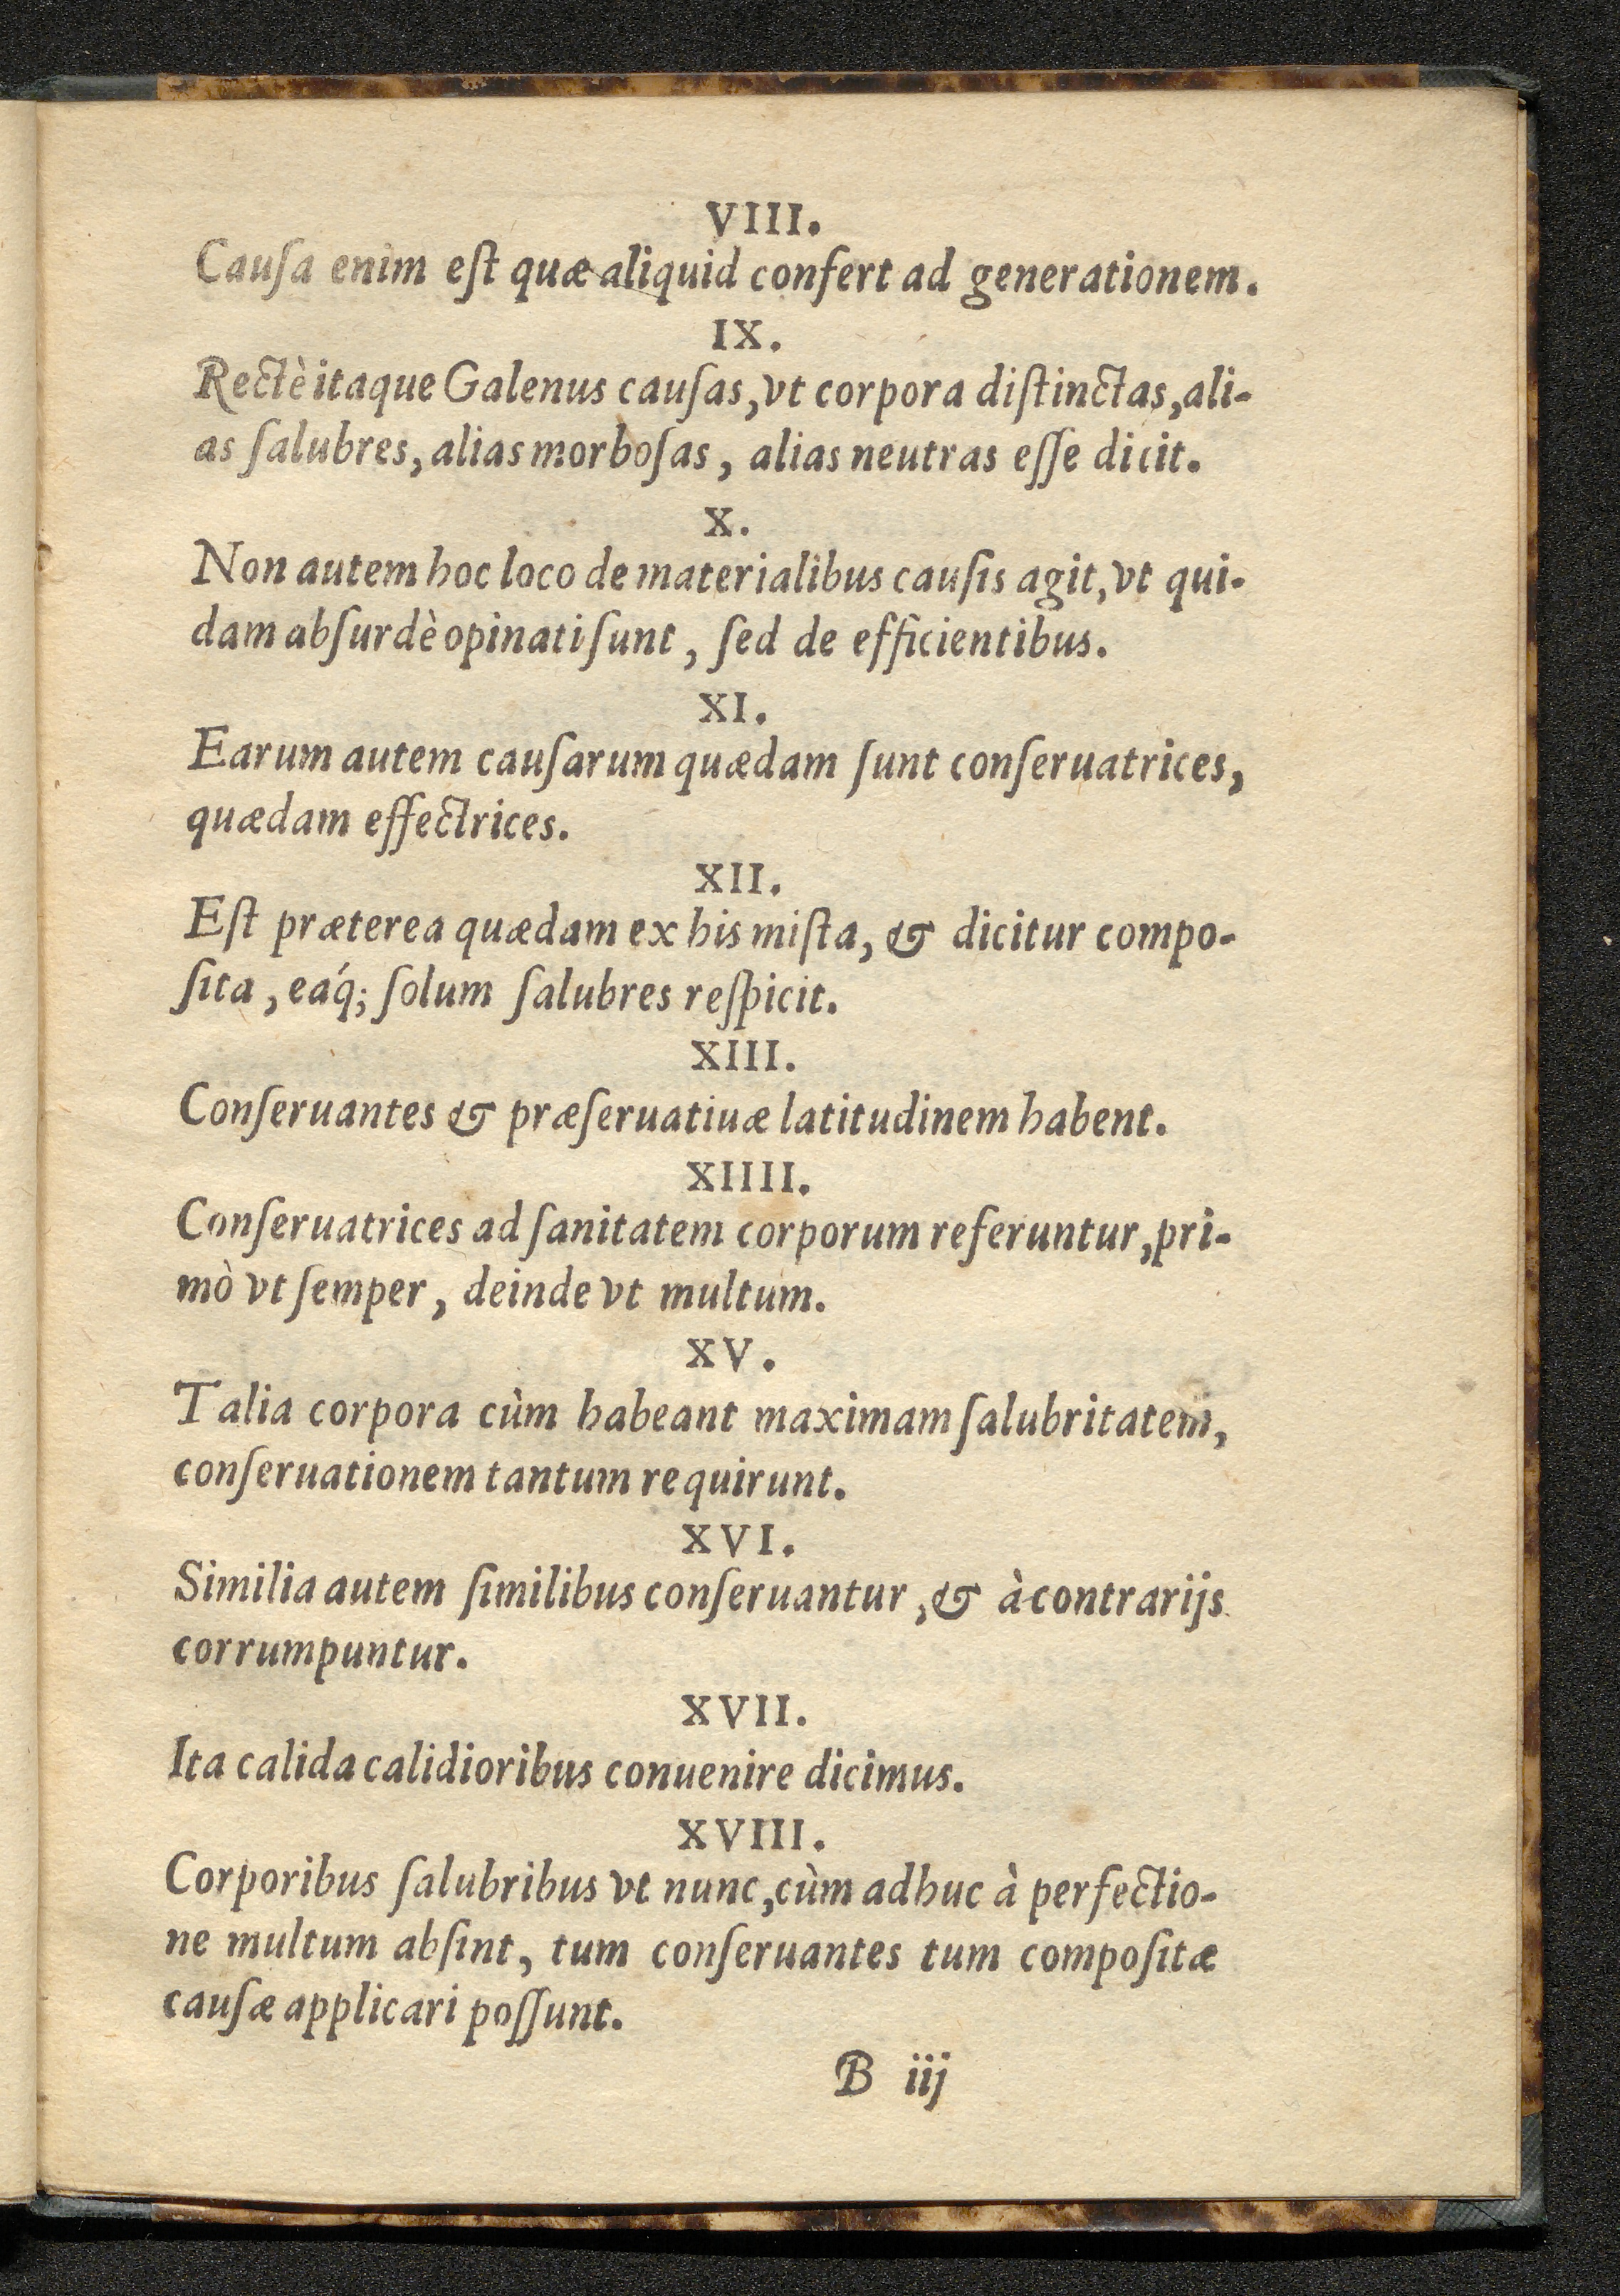 VIII.
Cauſa enim eſt quæ aliquid confert ad generationem.
IX.
Rectè itaque Galenus cauſas, vt corpora diſtinctas, ali-
as ſalubres, alias morboſas, alias neutras eſſe dicit.
X.
Non autem hoc loco de materialibus cauſis agit, vt qui-
dam abſurdè opinati ſunt, ſed de efficientibus.
XI.
Earum autem cauſarum quædam ſunt conſeruatrices,
quædam effectrices.
XII.
Eſt præterea quædam ex his miſta, & dicitur compo-
ſita, eáq; ſolum ſalubres reſpicit.
XIII.
Conſeruantes & præſeruatiuæ latitudinem habent.
XIIII.
Conſeruatrices ad ſanitatem corporum referuntur, pri-
mò vt ſemper, deinde vt multum.
XV.
Talia corpora cùm habeant maximam ſalubritatem,
conſeruationem tantum requirunt.
XVI.
Similia autem ſimilibus conſeruantur, & à contrarijs
corrumpuntur.
XVII.
Ita calida calidioribus conuenire dicimus.
XVIII.
Corporibus ſalubribus vt nunc, cùm adhuc à perfectio-
ne multum abſint, tum conſeruantes tum compoſitæ
cauſæ applicari poſſunt.
B iij